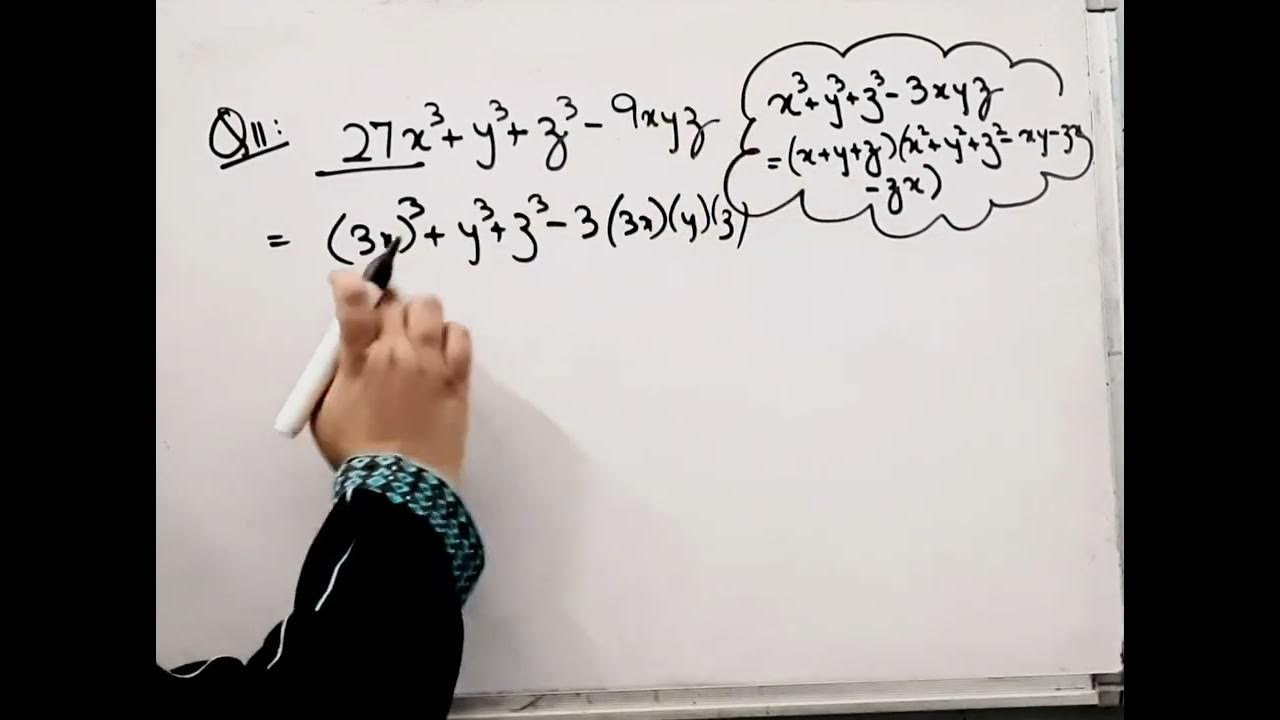 Q11: 27x³ + y³ + z³ - 9xyz
= (3x)³ + y³ + z³ - 3(3x)(y)(z)
x³ + y³ + z³ - 3xyz
= (x+y+z)(x² + y² + z² - xy - yz
- zx)